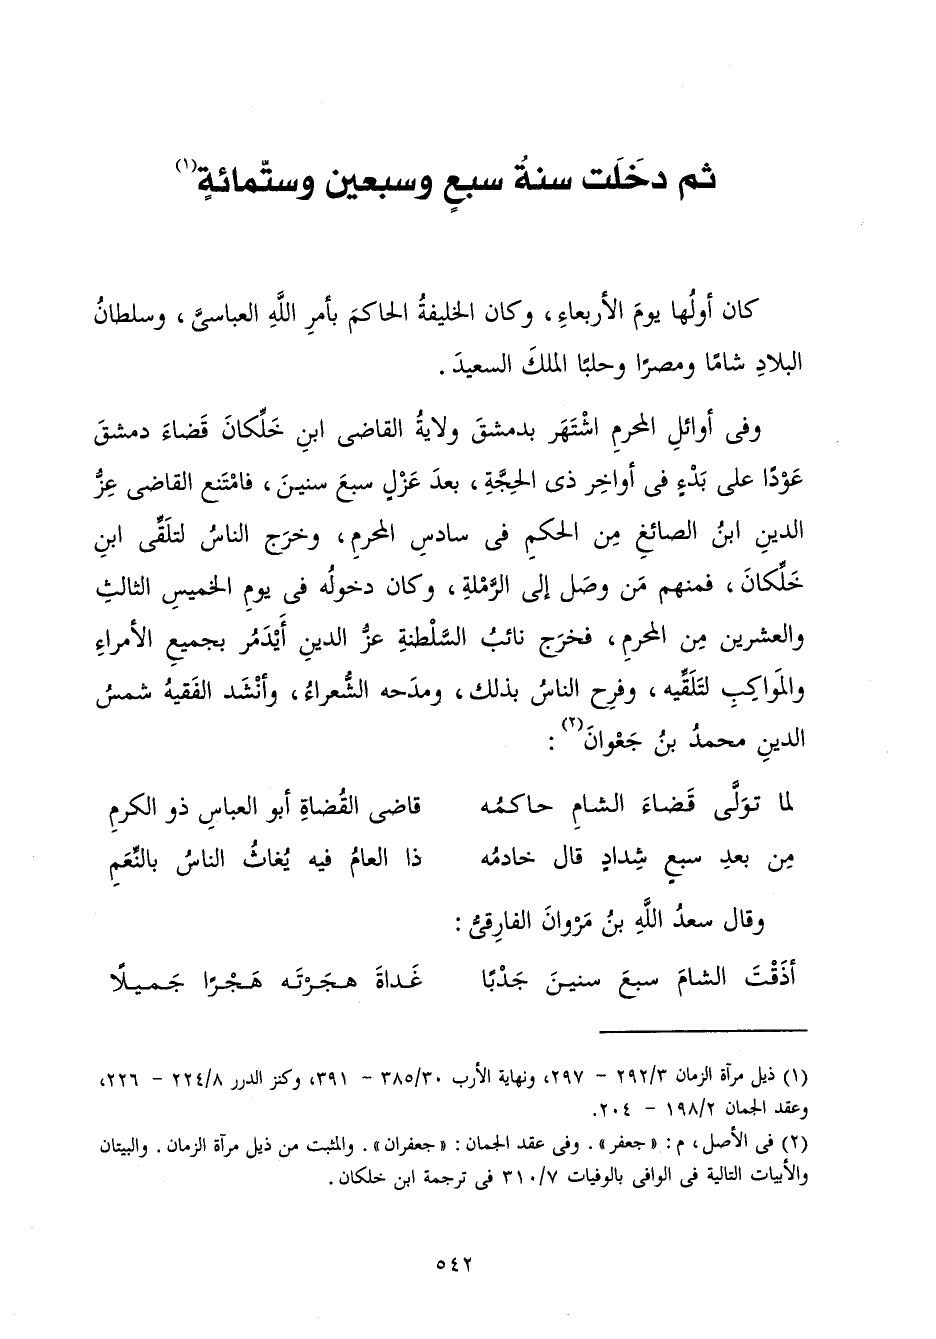 ثم دخَلَت سنةُ سبعٍ وسبعين وستّمائةٍ(١)
كان أولُها يومَ الأربعاءِ، وكان الخليفةُ الحاكمَ بأمرِ اللَّهِ العباسىَّ، وسلطانُ
البلادِ شامًا ومصرًا وحلبًا الملكَ السعيدَ.
وفى أوائلِ المحرمِ اشْتَهَر بدمشقَ ولايةُ القاضى ابنِ خَلِّكانَ قَضاءَ دمشقَ
عَوْدًا على بَدْءٍ فى أواخِرِ ذى الحِجَّةِ، بعدَ عَزْلٍ سبعَ سنينَ، فامْتَنع القاضى عِزُّ
الدينِ ابنُ الصائغِ مِن الحكمِ فى سادسِ المحرمِ، وخرَج الناسُ لتلَقِّى ابنِ
خَلِّكانَ، فمنهم مَن وصَل إلى الرَّمْلةِ، وكان دخولُه فى يومِ الخميسِ الثالثِ
والعشرين مِن المحرمِ، فخرَج نائبُ السَّلْطنةِ عزُّ الدينِ أَيْدَمُر بجميعِ الأمراءِ
والمَواكِبِ لتَلَقِّيه، وفرِح الناسُ بذلك، ومدَحه الشُّعراءُ، وأنْشَد الفَقيهُ شمسُ
الدينِ محمدُ بنُ جَعْوانَ(٢):
لما تولَّى قَضاءَ الشامِ حاكمُه قاضى القُضاةِ أبو العباسِ ذو الكرمِ
مِن بعدِ سبعٍ شِدادٍ قال خادمُه ذا العامُ فيه يُغاثُ الناسُ بالنِّعَمِ
وقال سعدُ اللَّهِ بنُ مَرْوانَ الفارِقىُّ:
أذَقْتَ الشامَ سبعَ سنينَ جَدْبًا غَداةَ هجَرْتَه هَجْرًا جَميلًا
(١) ذيل مرآة الزمان ٢٩٢/٣ - ٢٩٧، ونهاية الأرب ٣٨٥/٣٠ - ٣٩١، وكنز الدرر ٢٢٤/٨ - ٢٢٦،
وعقد الجمان ١٩٨/٢ - ٢٠٤.
(٢) فى الأصل، م: «جعفر». وفى عقد الجمان: «جعفران». والمثبت من ذيل مرآة الزمان. والبيتان
والأبيات التالية فى الوافى بالوفيات ٣١٠/٧ فى ترجمة ابن خلكان.
٥٤٢